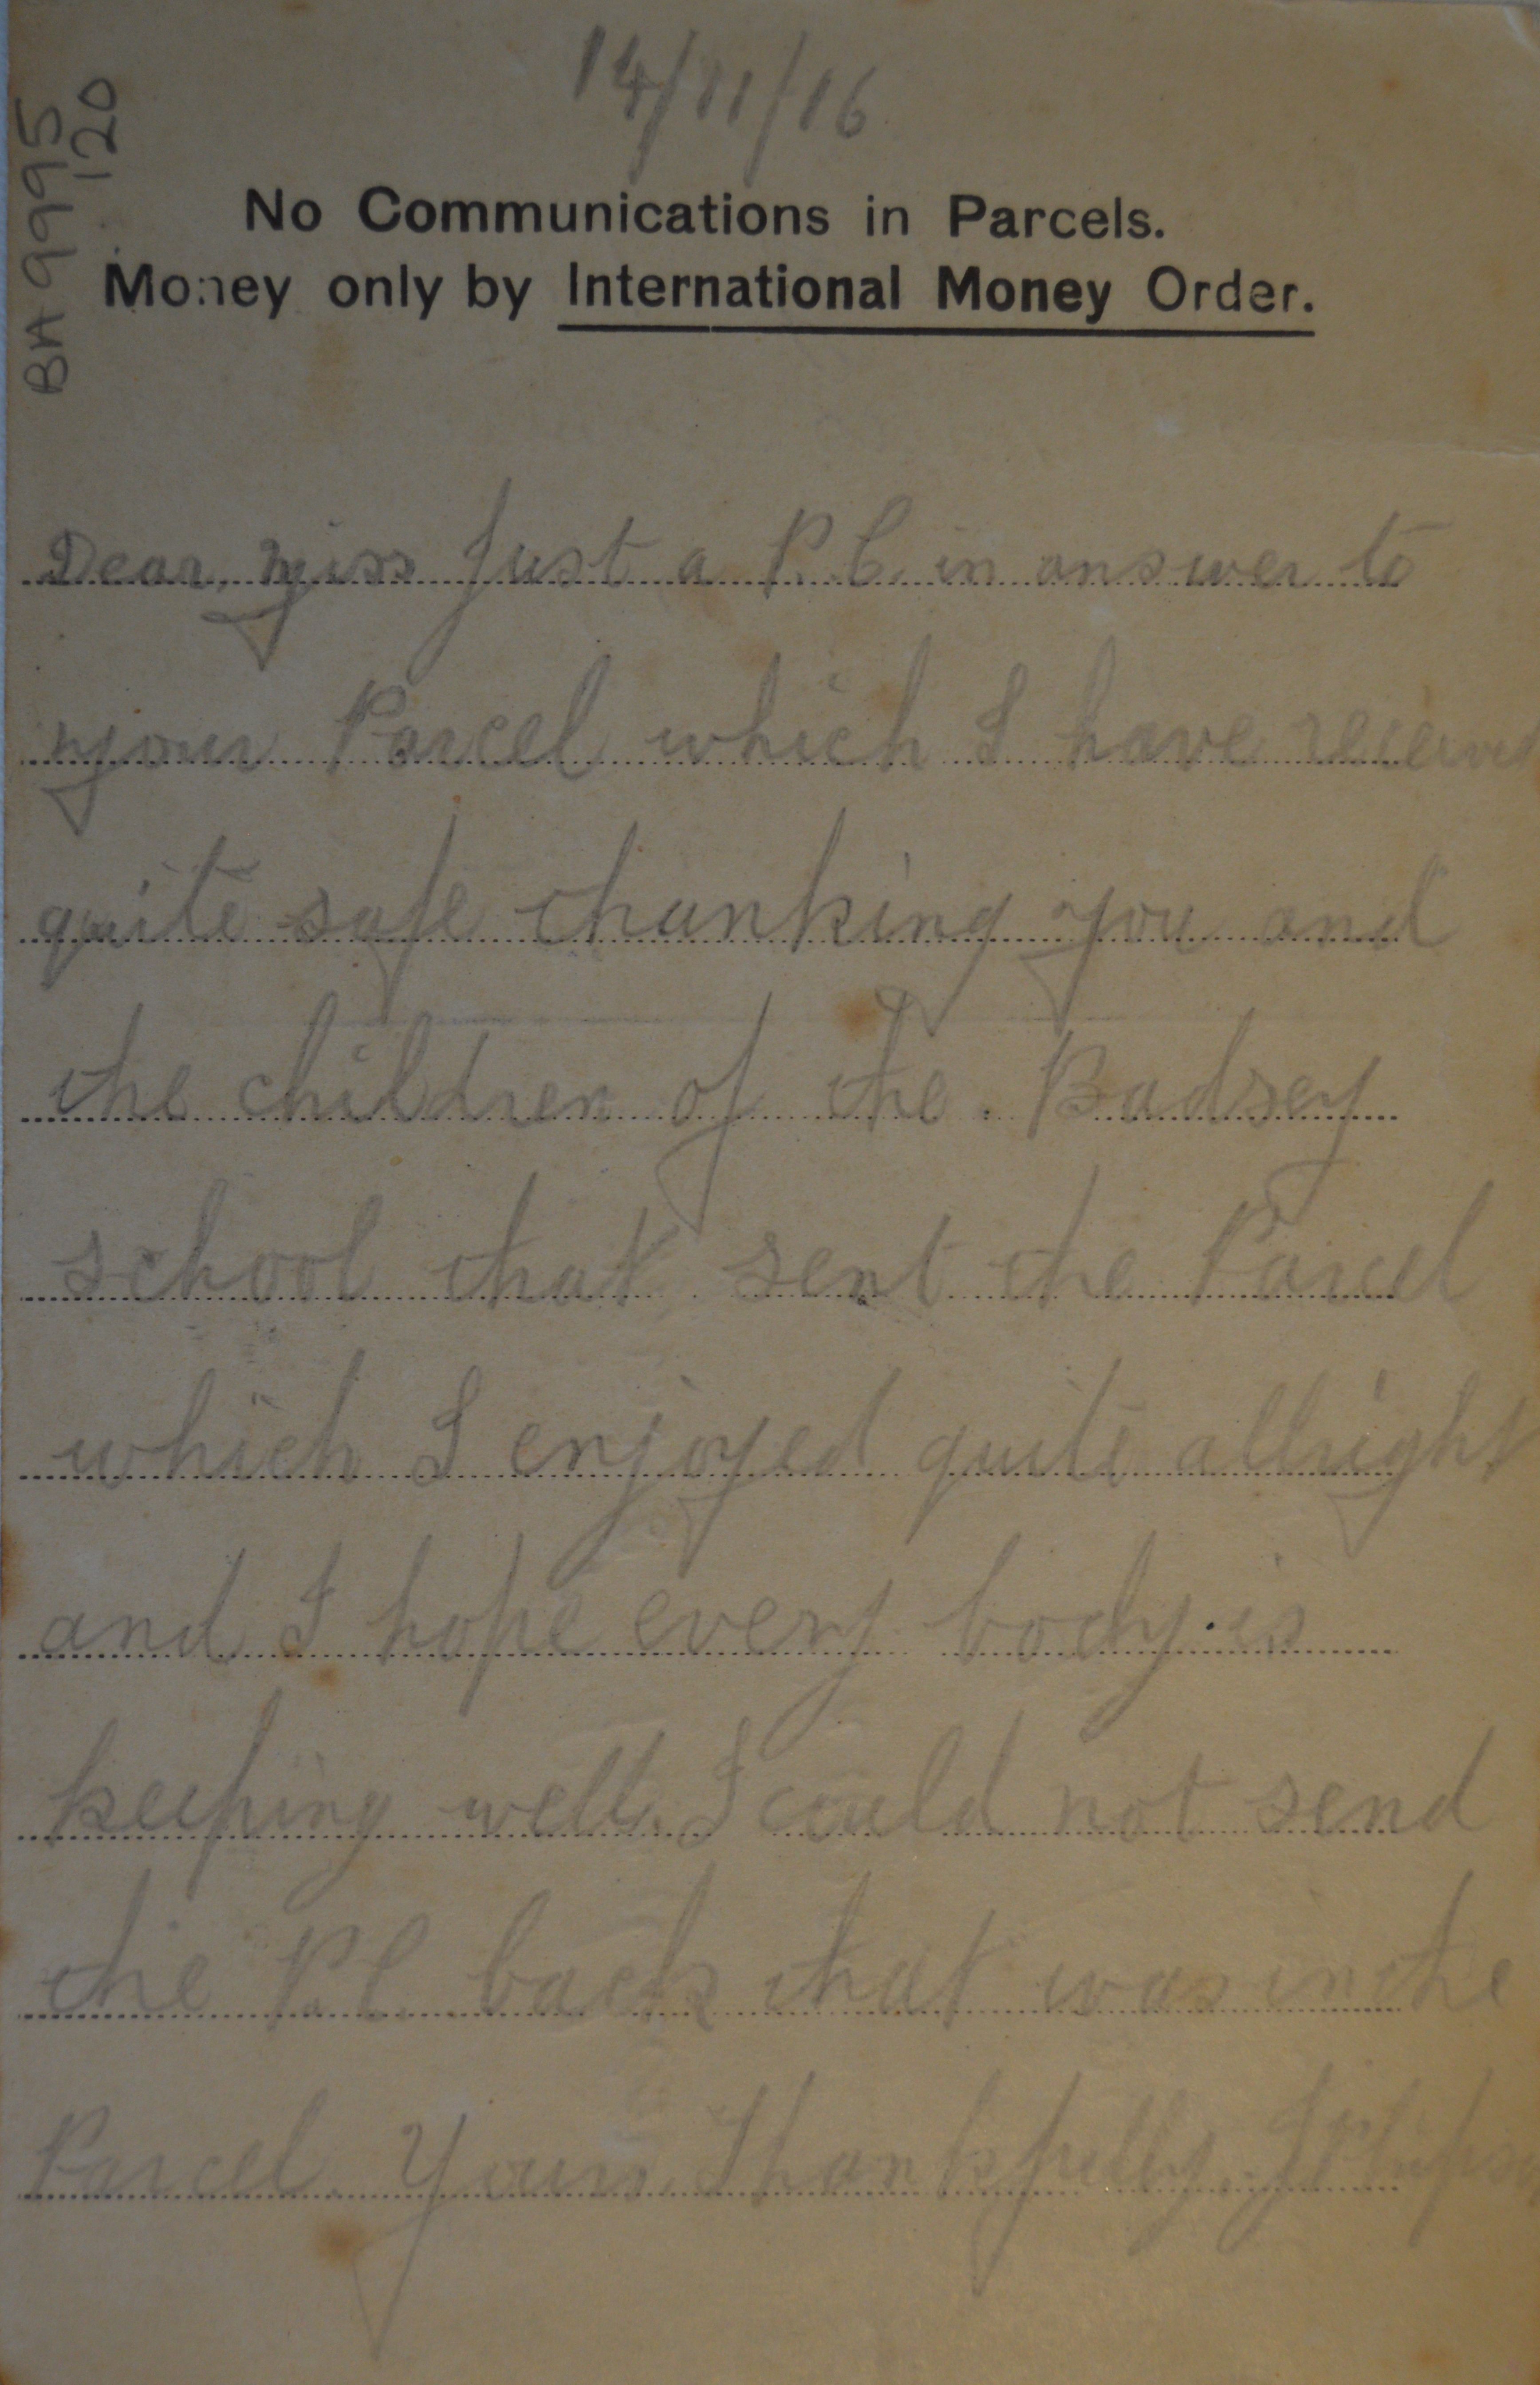 14/11/16
BA 9995
120
No Communications in Parcels.
Money only by International Money Order.
Dear, Miss Just a P.C. in answer to
your Parcel which I have received
quite safe thanking you and
the children of the Badsey
school that sent the Parcel
which I enjoyed quite allright
and I hope every body is
keeping well. I could not send
the P.C. back that was in the
Parcel. Yours Thankfully.